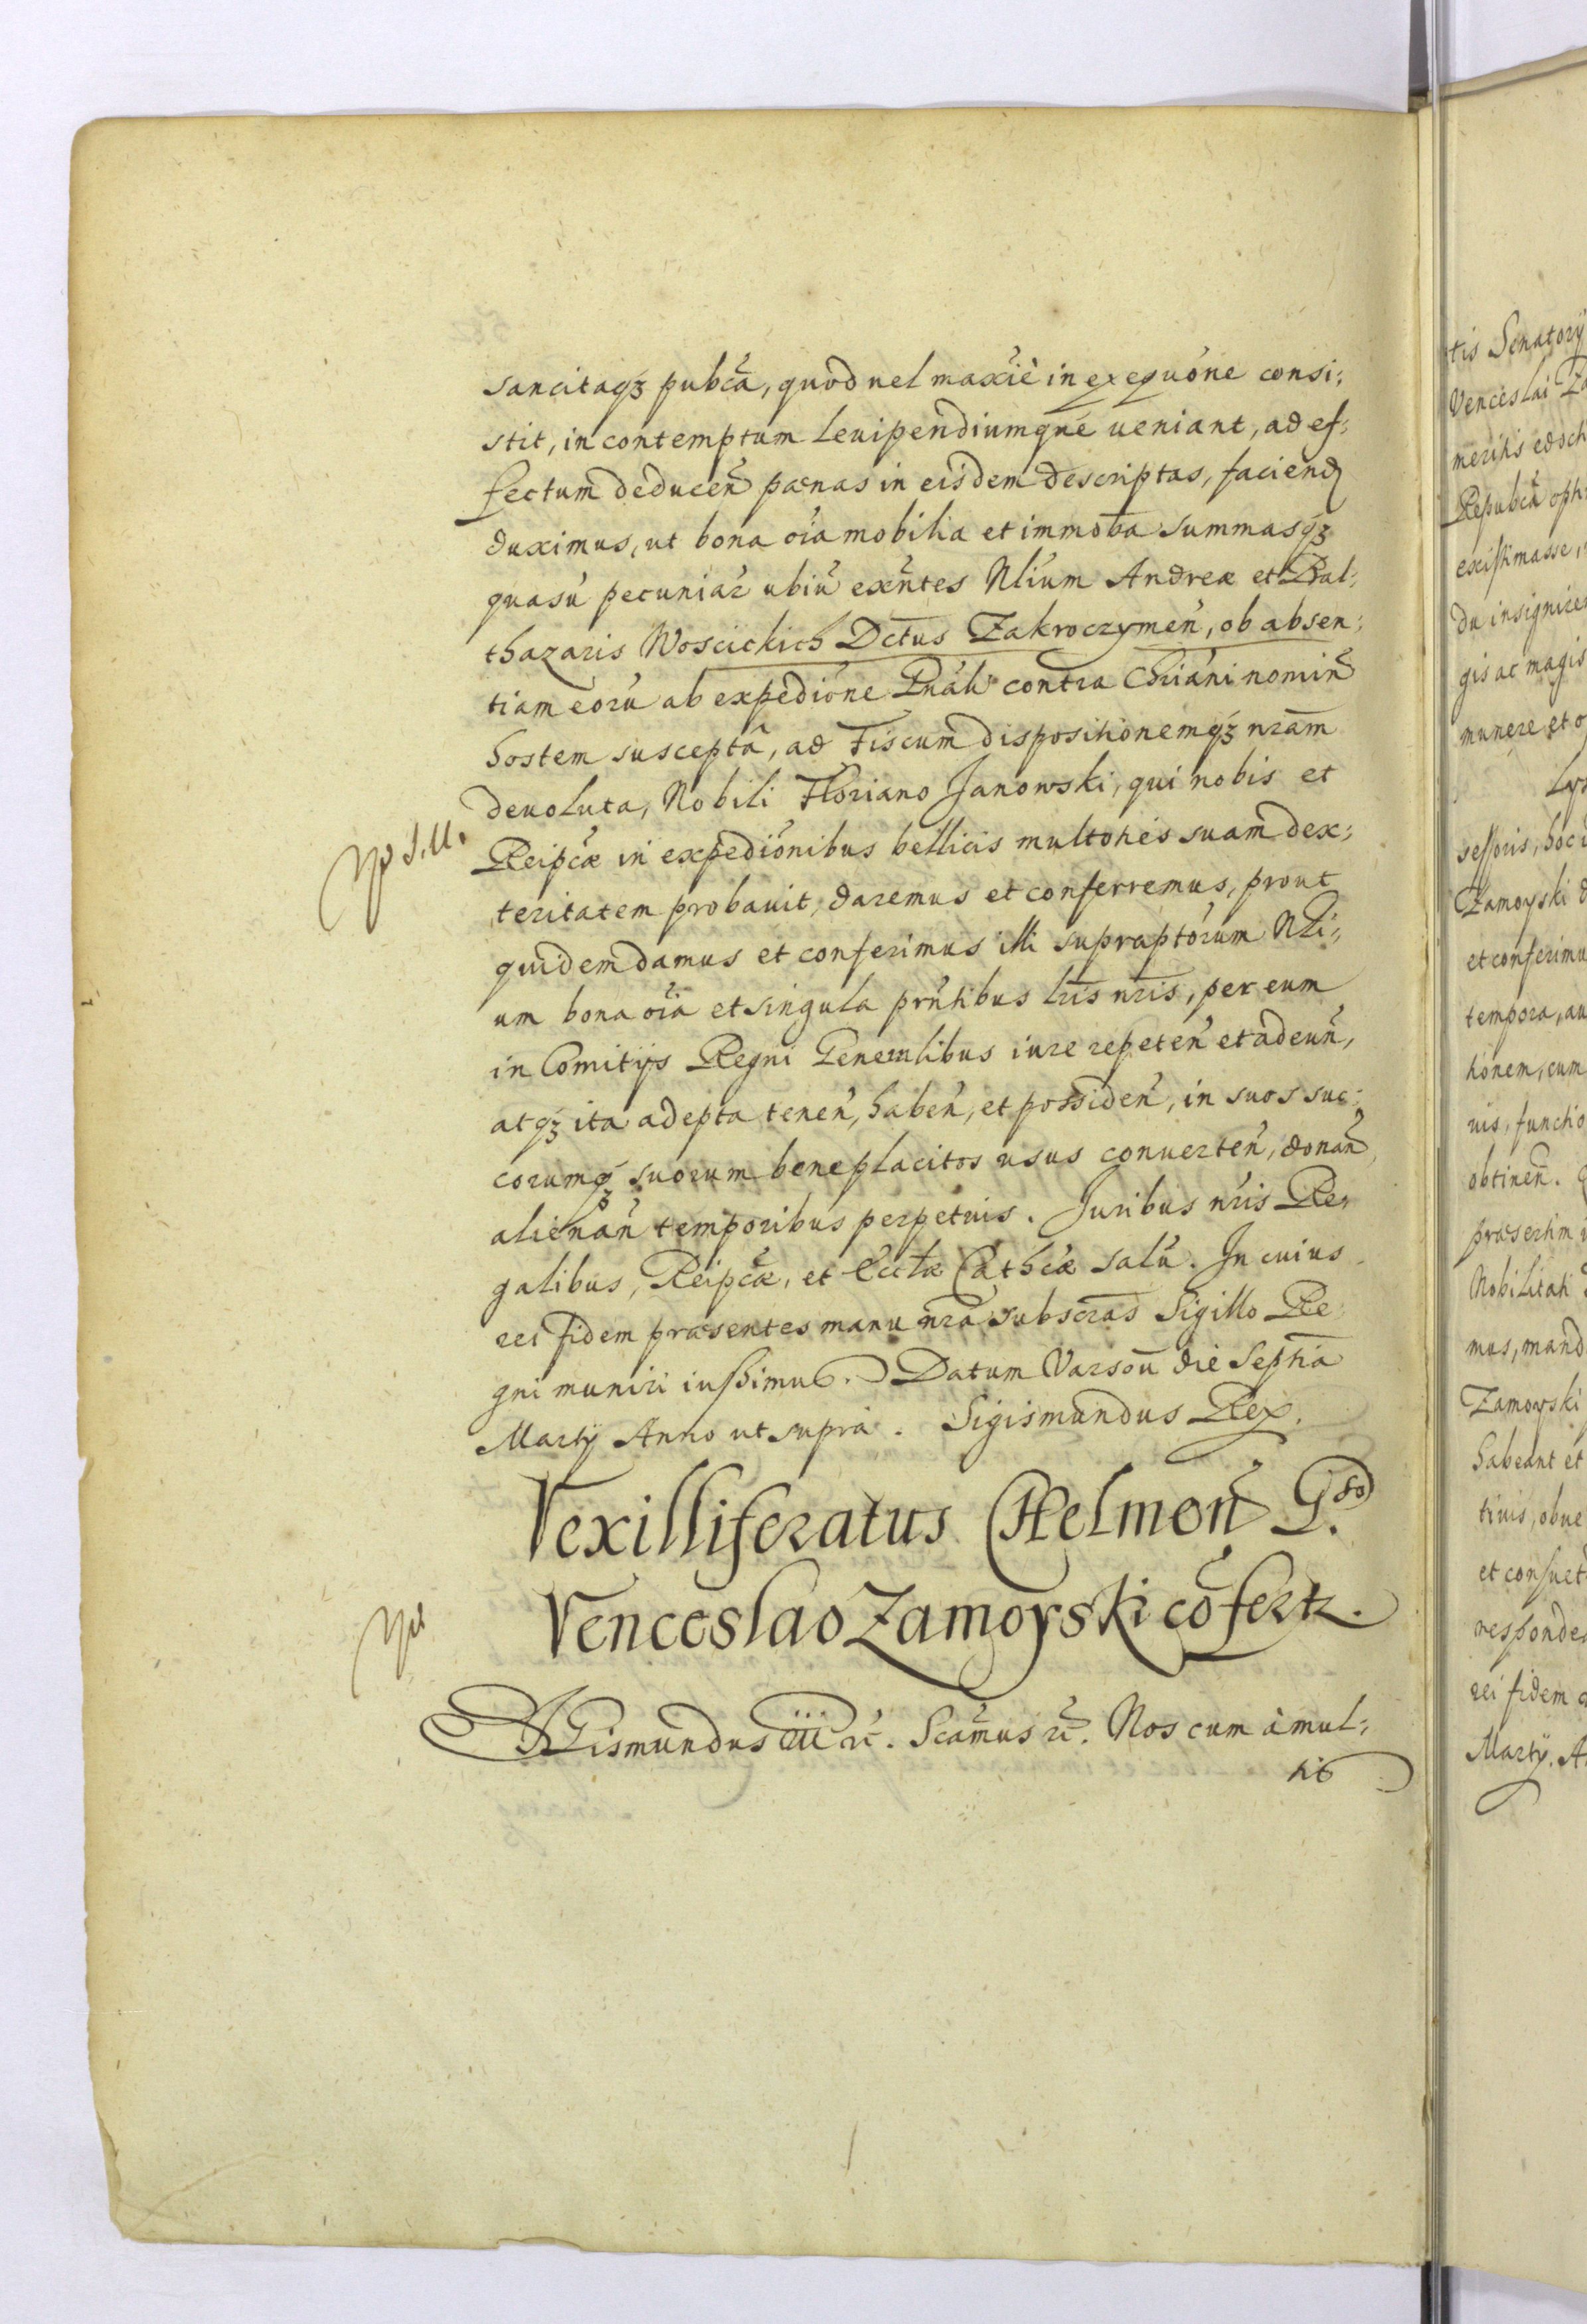 sancitaqꝫ pubcã, quod uel maxiè in exequóne consi:
stit, in contemptum leuipendiumqué ueniant, ad ef:
fectum deduceñ pænas in eisdem descriptas, faciend
duximus, ut bona oĩa mobilia et immoba summasqꝫ
quasũ pecuniar ubiũ exñtes Nlium Andreæ et Bal:
thazaris Woscickich Dctus Zakroczymeñ, ob absen:
tiam eorũ ab expedióne Gnali contra Chriáni nomiñ
hostem susceptâ, ad Fiscum dispositionemqꝫ nram
deuoluta, Nobili Floriano Janowski, qui nobis et
Reipcæ in expediónibus bellicis multoties suam dex:
teritatem probauit, daremus et conferremus, prout
quidem damus et conferimus illi supraptórum Nli:
um bona oĩa et singula prñtibus lris nris, per eum
in Comitijs Regni Generalibus iure repeteñ et adeuñ,
atqꝫ ita adepta teneñ, habeñ, et possideñ, in suos suc:
corumqꝫ suorum beneplacitos usus conuerteñ, donañ,
alienañ temporibus perpetuis. Juribus nris Re:
galibus, Reipcæ, et Ecclæ Cathcæ saluis. In cuius
rei fidem præsentes manu nrã subscras Sigillo Re:
gni muniri iussimus. Datum Varsou die Septia
Martij Anno ut supra. Sigismundus Rex.
Vexilliferatus Chelmoñ G.so
Venceslao Zamoyski cõfertr.
SGismundus III rc. Scãmus rc. Nos cum à mul:
tis
tis Senatorij
Venceslai Za
meritis edoch
Repubcã opt
existimasse,
du insignire
gis ac magis
munere et o
sessoris, hoc
Zamoyski d
et conferimu
tempora, au
tionem, cum
uis, functio
obtineñ.
præsertim
Nobilitati
mus, mand
Zamoyski
habeant et
tiuis, obue
et consuet
responde
rei fidem
Martij. A